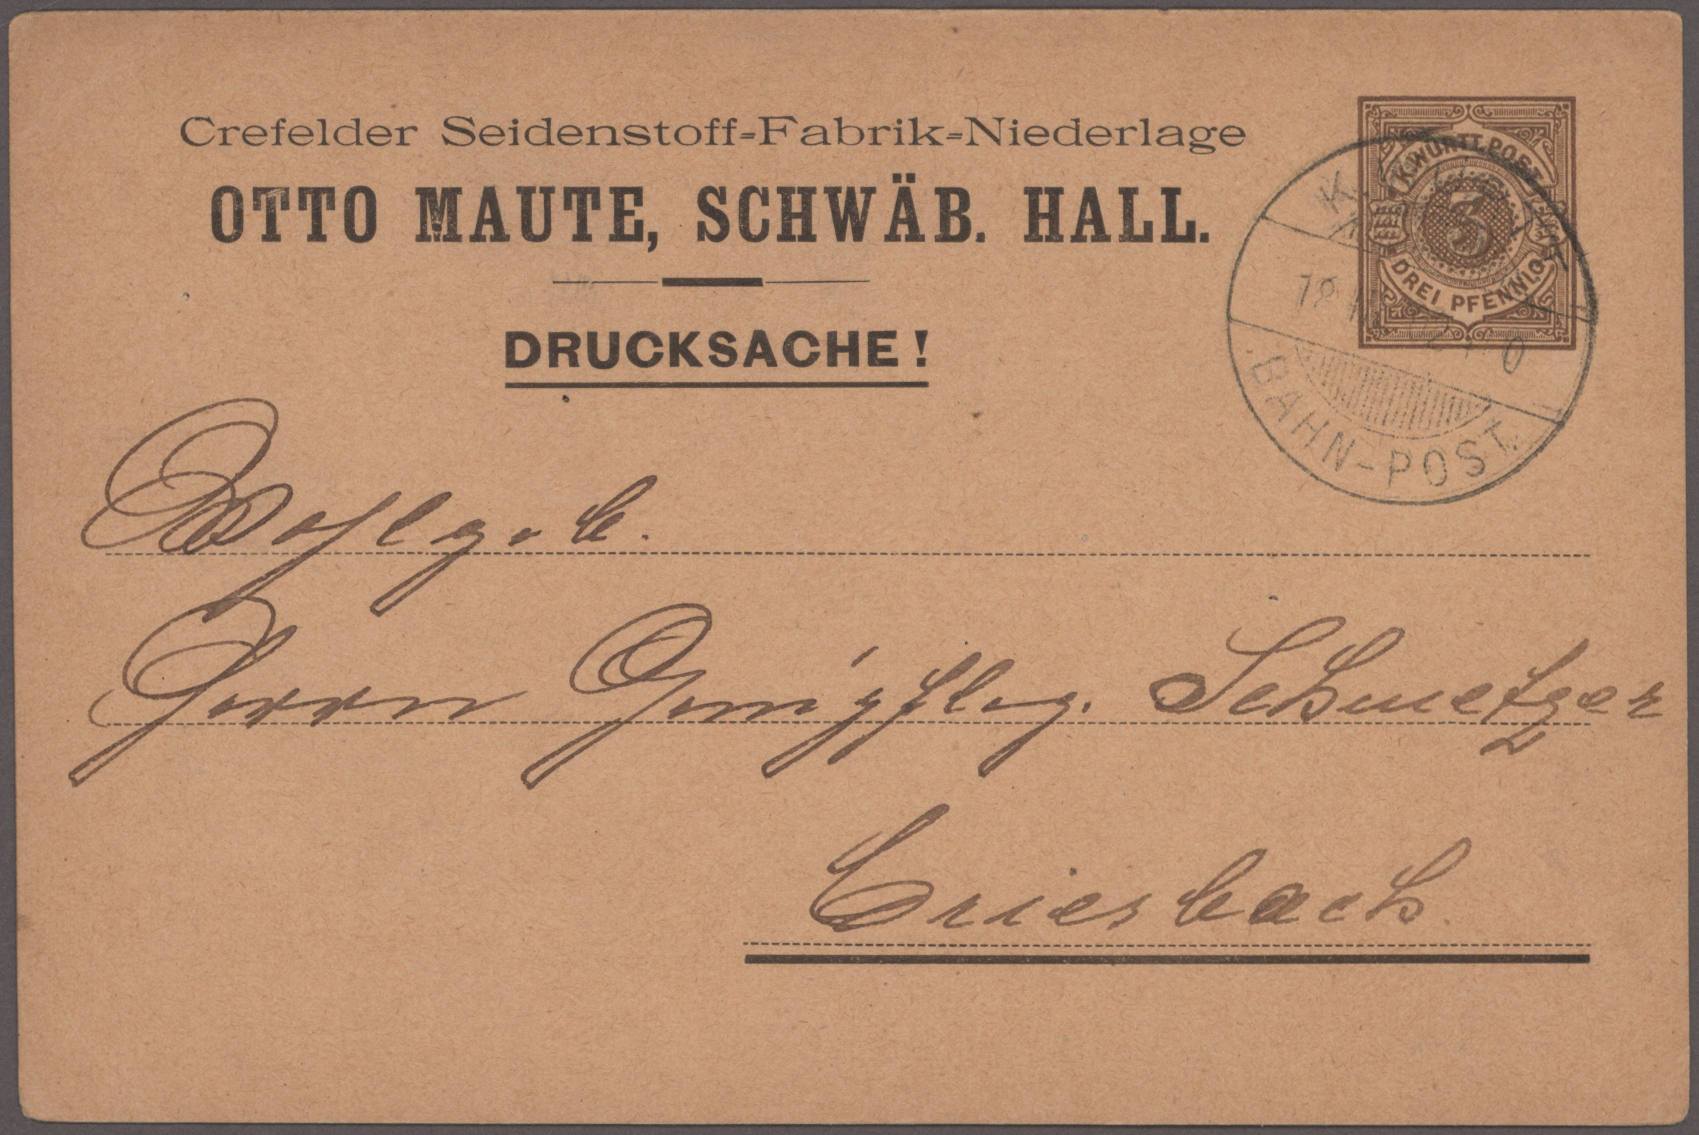 Crefelder Seidenstoff=Fabrik=Niederlage
OTTO MAUTE, SCHWÄB. HALL.
DRUCKSACHE!
K. WÜRTT. POST
3
DREI PFENNIG
BAHN-POST.
Wohlgeb.
Herrn Schmetzer
Criesbach